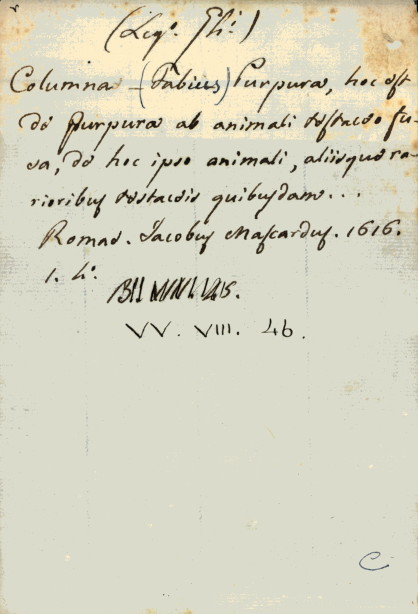 (Leg.º Ghi.)
Columna (Fabius) Purpura, hoc est
de purpura ab animali testaceo fu-
sa, de hoc ipso animali, aliisque ra-
rioribus testaceis quibusdam...
Romae. Jacobus Mascardus. 1616.
1. 4.º
VV. VIII. 46.
C